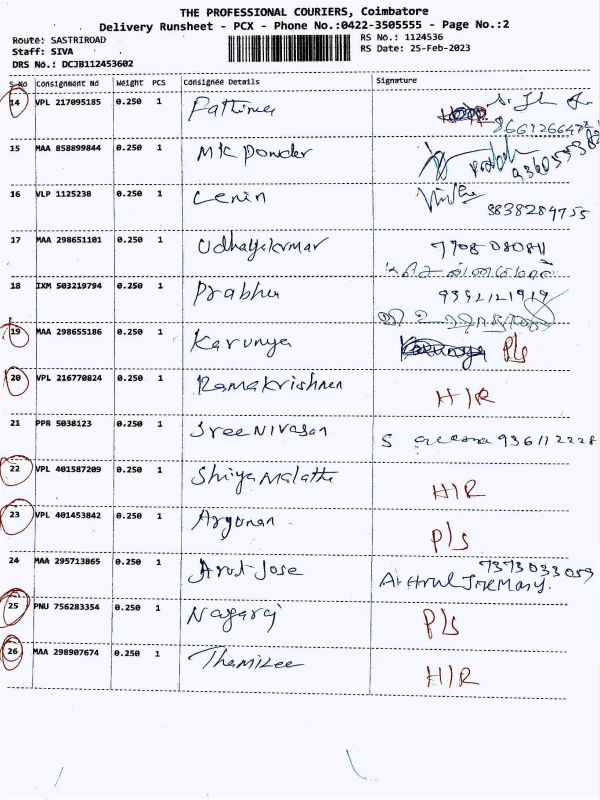 THE PROFESSIONAL COURIERS, Coimbatore
Delivery Runsheet - PCX - Phone No.:0422-3505555 - Page No.:2
Route: SASTRIROAD RS No.: 1124536
Staff: SIVA RS Date: 25-Feb-2023
DRS No.: DCJB112453602
S.No Consignment No Weight PCS Consignee Details Signature
14 VPL 217095185 0.250 1 Fathima
15 MAA 858899844 0.250 1 MK Powder
16 VLP 1125238 0.250 1 Lenin 9838284755
17 MAA 298651101 0.250 1 Udhayakumar 7708080811
18 IXM 503219794 0.250 1 Prabhu
19 MAA 298655186 0.250 1 Karunya P/s
20 VPL 216770824 0.250 1 Ramakrishnan H/R
21 PPR 5038123 0.250 1 Sree Nivasan S 936112228
22 VPL 401587209 0.250 1 H/R
23 VPL 401453842 0.250 1 P/s
24 MAA 295713865 0.250 1 Arul Jose 7373033059
25 PNU 756283354 0.250 1 Nagaraj P/s
26 MAA 298907674 0.250 1 H/R